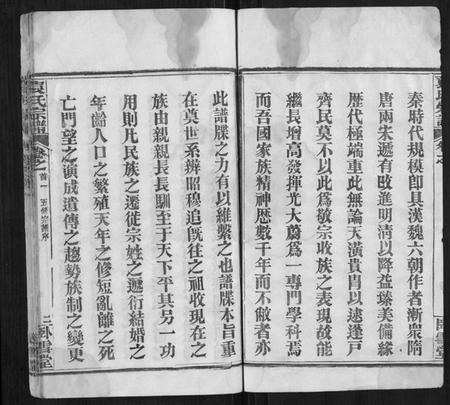 秦時代規模卽具漢魏六朝作者漸衆隋
唐兩宋遞有改進明淸以降益臻美備緣
歷代極端重此無論天潢貴冑以逮蓬戶
齊民莫不以此爲敬宗收族之表現故能
繼長增高發揮光大蔚爲一專門學科焉
而吾國家族精神歷數千年而不敝者亦
此譜牒之力有以維繫之也譜牒本旨重
在奠世系辨昭穆追旣往之祖收現在之
族由親親長長馴至于天下平其另一功
用則凡民族之遷徙宗姓之遞衍結婚之
年齡人口之繁殖天年之修短亂離之死
亡門望之演成遺傳之趨勢族制之變更
袁氏宗譜 卷之一 首一 五修宗譜序 三 臥雪堂